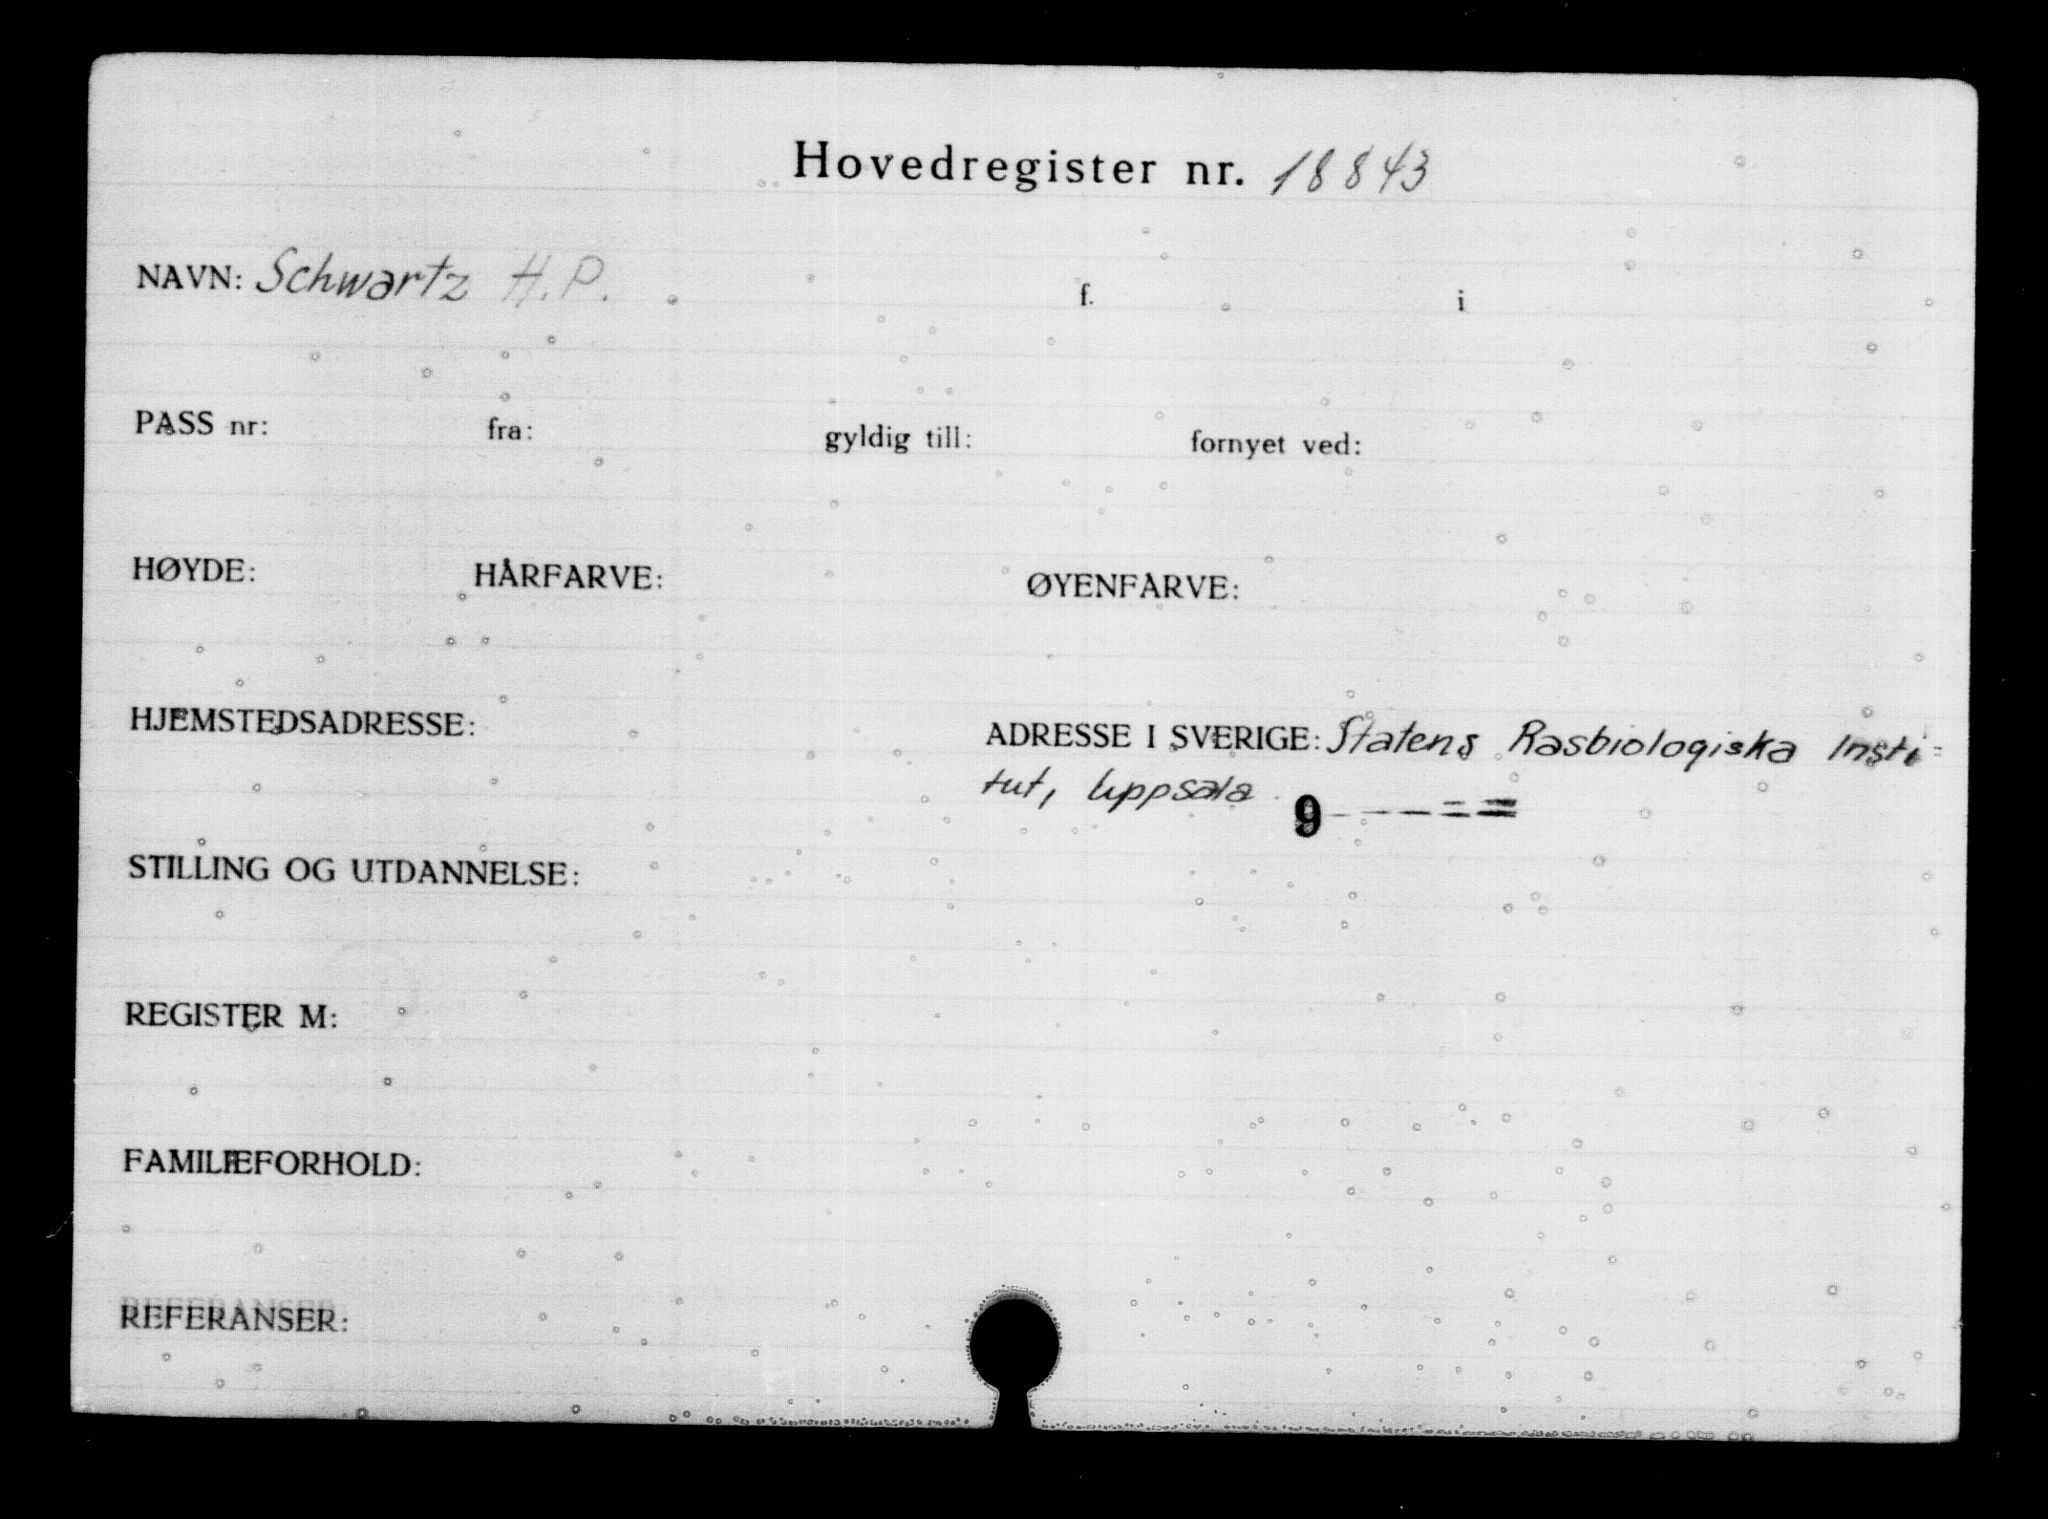 Hovedregister nr. 18843
NAVN: Schwartz H.P. f. i
PASS nr: fra: gyldig till: fornyet ved:
HØYDE: HÅRFARVE: ØYENFARVE:
HJEMSTEDSADRESSE: ADRESSE I SVERIGE: Statens Rasbiologiska Insti=
tut, Uppsala 9
STILLING OG UTDANNELSE:
REGISTER M:
FAMILIEFORHOLD:
REFERANSER: